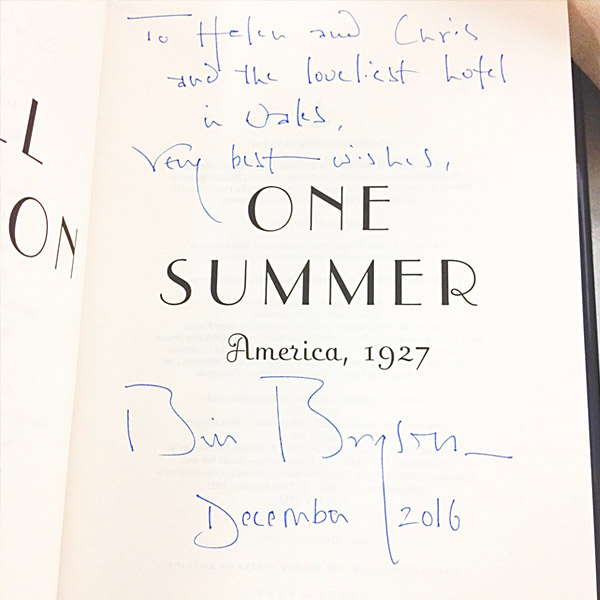 To Helen and Chris
and the loveliest hotel
in Wales,
Very best wishes,
LL
ON
ONE
SUMMER
America, 1927
Bill Bryson
December 2016